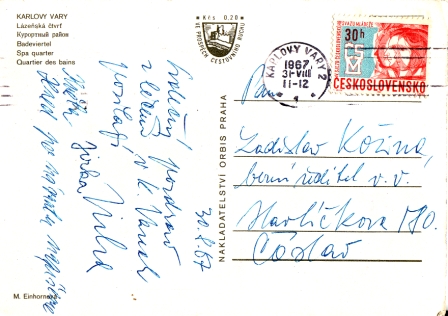 KARLOVY VARY
Lázeňská čtvrť
Курортный район
Badeviertel
Spa quarter
Quartier des bains
Kčs 0.20
VE PROSPĚCH CESTOVNÍHO RUCHU
KARLOVY VARY 2
1967
31.VIII
11-12
30h
ČESKOSLOVENSKO
Srdečný pozdrav
z léčení v K. Varech
posílají
30.8.67
NAKLADATELSTVÍ ORBIS PRAHA
Pan
Ladislav Kožina,
berní ředitel v. v.
Havlíčkova
Čáslav
M. Einhorn